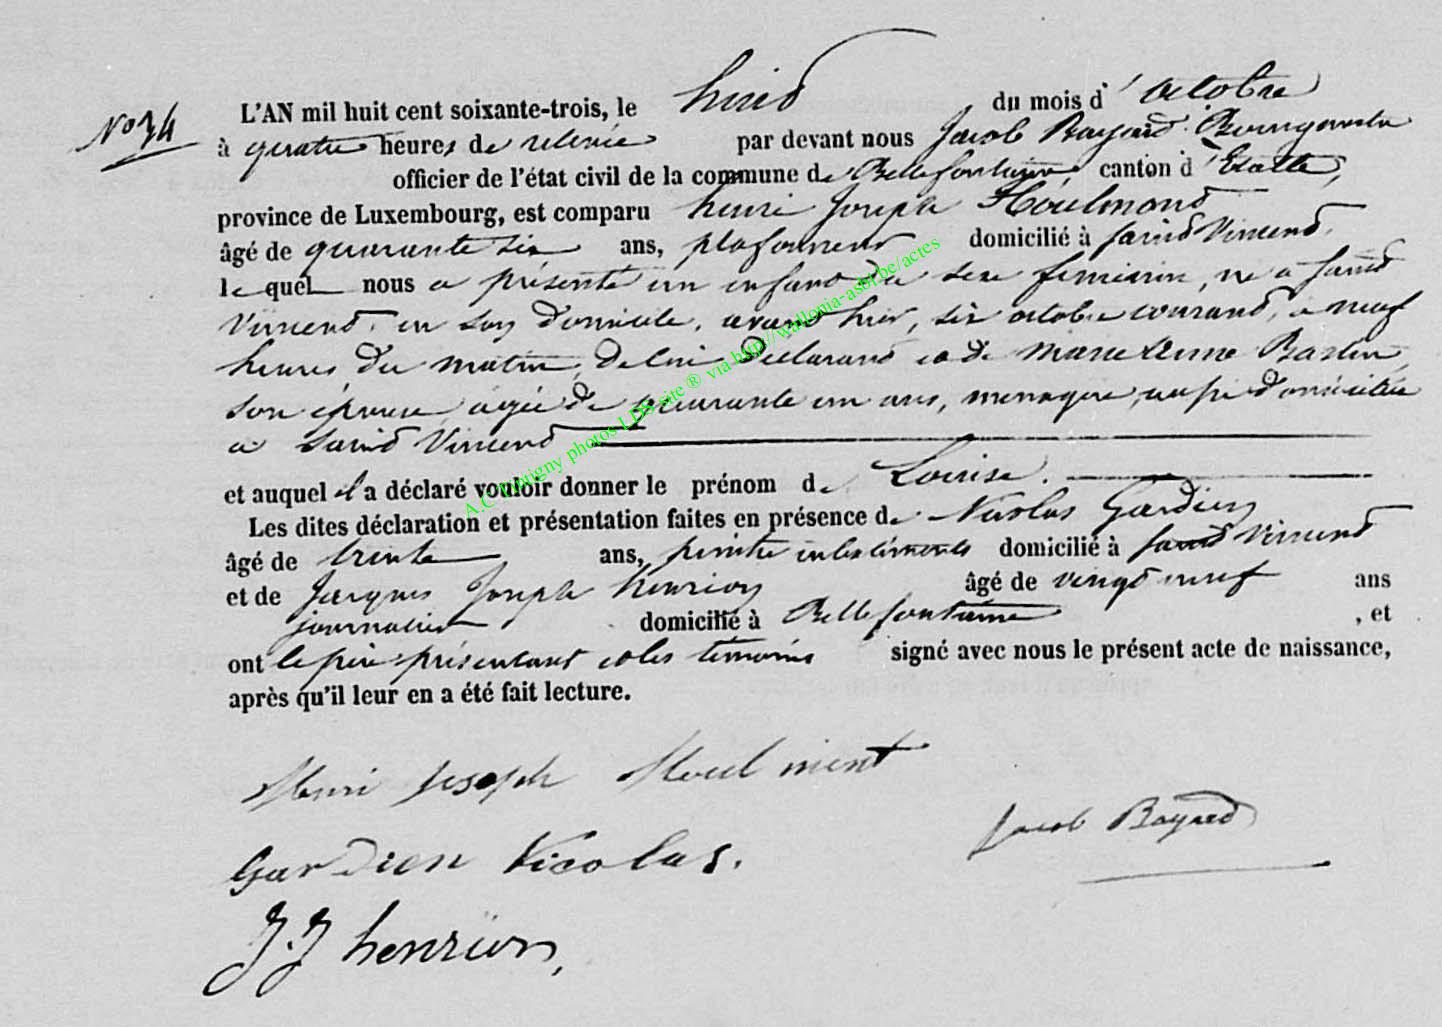 N° 34
L'AN mil huit cent soixante-trois, le huit du mois d'octobre
à quatre heures de relevée par devant nous Jacob Bayard Bourgmestre
officier de l'état civil de la commune de Bellefontaine, canton d'Etalle,
province de Luxembourg, est comparu henri Joseph Houlmond
âgé de quarante six ans, plafonneur domicilié à Saint Vincent,
lequel nous a présenté un enfant du sexe feminin, né a Saint
Vincent, en son domicile, avant hier, six octobre courant, a neuf
heures du matin, de lui Declarant et de Bastin
son épouse agée de quarante un ans, menagere, aussi domiciliée
a Saint Vincent
et auquel il a déclaré vouloir donner le prénom de Louise.
Les dites déclaration et présentation faites en présence de Nicolas Gardien
âgé de trente ans, peintre en batiments domicilié à Saint Vincent
et de Jacques Joseph henrion âgé de vingt neuf ans
journalier domicilié à Bellefontaine , et
ont le père présentant et les témoins signé avec nous le présent acte de naissance,
après qu'il leur en a été fait lecture.
Henri Joseph Houlmont
Jacob Bayard
Gardien Nicolas.
J.J henrion,
A.C Tintigny photos LDS-site ® via http://wallonia-asbl.be/actes